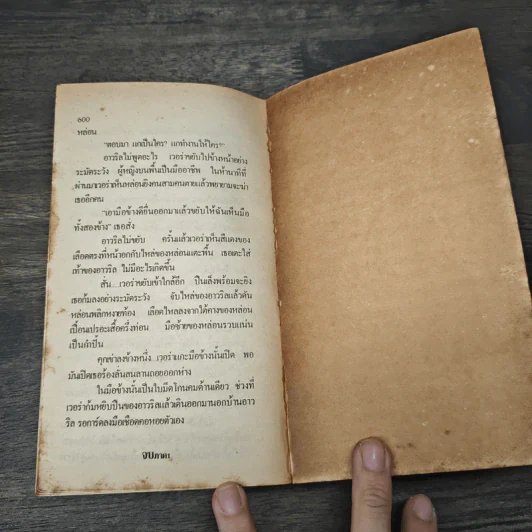 600
หล่อน
"ตอบมา แกเป็นใคร" แกทำงานให้ใคร?"
อาวริลไม่พูดอะไร เวอร่าขยับไปข้างหน้าอย่าง
ระมัดระวัง ผู้หญิงบนพื้นเป็นมืออาชีพ ในห้านาทีที่
ผ่านมาเวอร่าเห็นหล่อนยิงคนสามคนตายแล้วพยายามจะฆ่า
เธออีกคน
"เอามือข้างดียื่นออกมาแล้วขยับให้ฉันเห็นมือ
ทั้งสองข้าง" เธอสั่ง
อาวริลไม่ขยับ ครั้นแล้วเวอร่าเห็นสีแดงของ
เลือดตรงที่หน้าอกกับไหล่ของหล่อนแตะพื้น เธอเตะใส่
เท้าของอาวริล ไม่มีอะไรเกิดขึ้น
สั่น...เวอร่าขยับเข้าใกล้อีก ปืนเล็งพร้อมจะยิง
เธอก้มลงอย่างระมัดระวัง จับไหล่ของอาวริลแล้วดัน
หล่อนพลิกหงายท้อง เลือดไหลลงจากใต้คางของหล่อน
เปื้อนเปรอะเสื้อครึ่งท่อน มือซ้ายของหล่อนรวบแน่น
เป็นกำปั้น
คุกเข่าลงข้างหนึ่ง เวอร่าแกะมือข้างนั้นเปิด พอ
มันเปิดเธอร้องลั่นลนลานถอยออกห่าง
ในมือข้างนั้นเป็นใบมีดโกนคมด้านเดียว ช่วงที่
เวอร่าก้มหยิบปืนของอาวริลแล้วเดินออกมานอกบ้านอาว
ริล รอการ์ดลงมือเชือดคอหอยตัวเอง
จบภาค